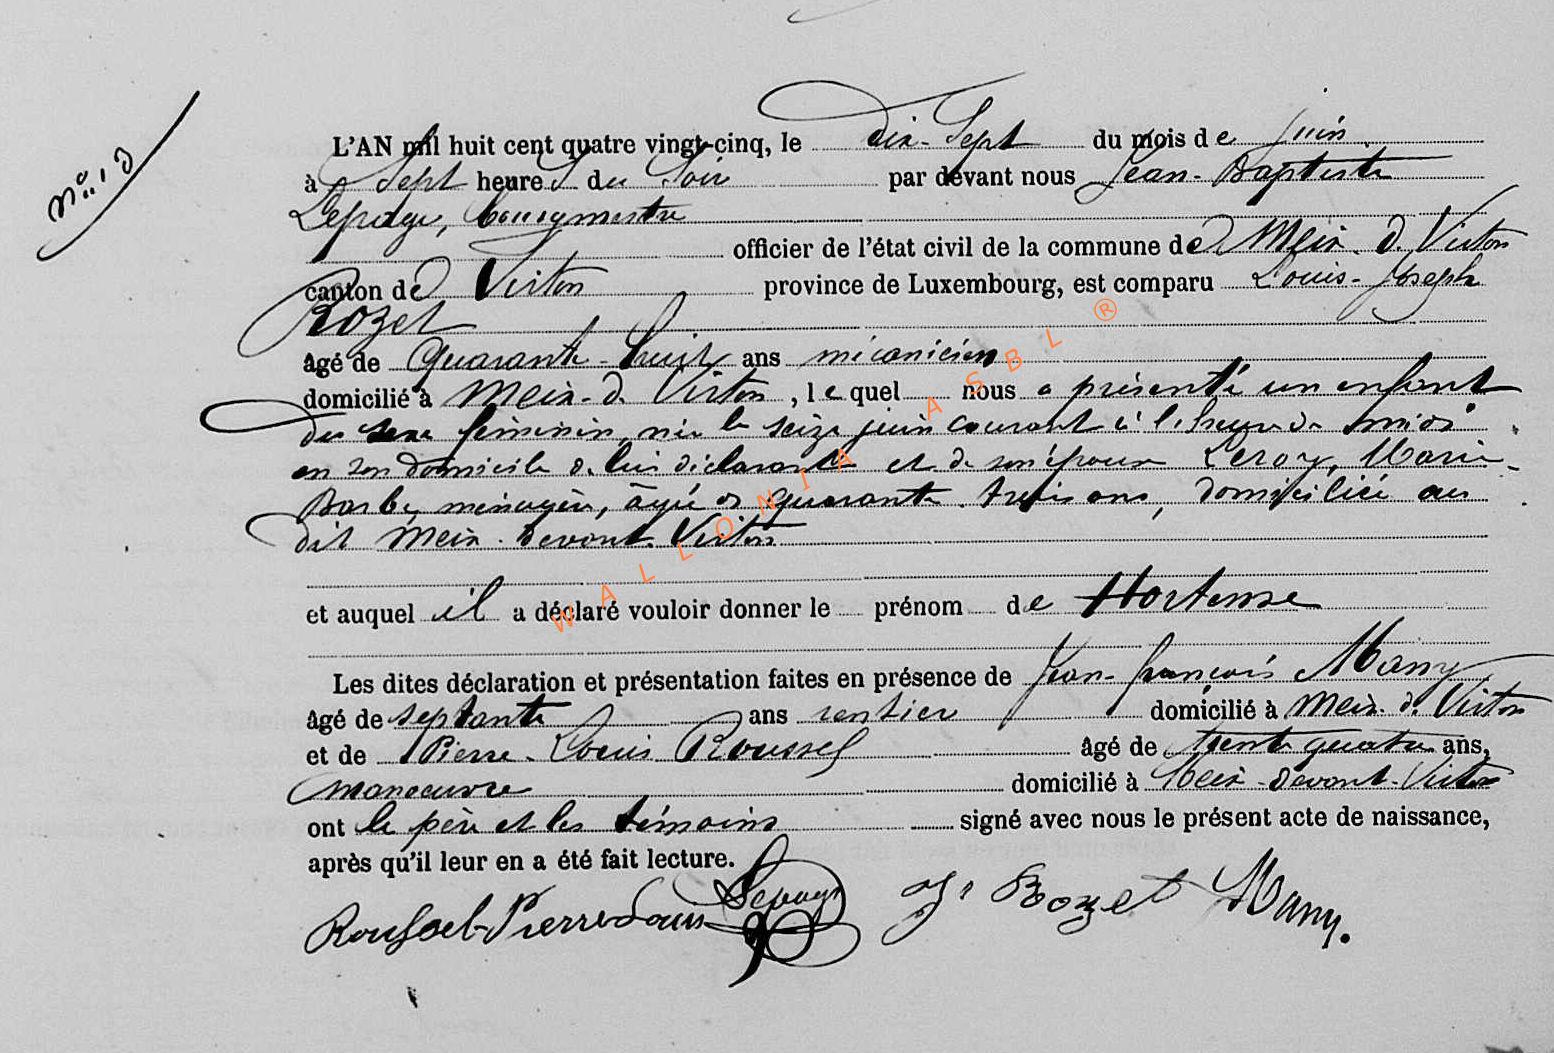 L'AN mil huit cent quatre vingt-cinq, le dix-Sept du mois de juin
à Sept heures du Soir par devant nous Jean-Baptiste
Lepage, bourgmestre
officier de l'état civil de la commune de Meix-d. Virton
canton de Virton province de Luxembourg, est comparu Louis-Joseph
Rozet
âgé de quarante-huit ans mécanicien
domicilié à Meix-d. Virton, lequel nous a présenté un enfant
du sexe féminin, née le seize juin courant à l'heure de midi
en son domicile de lui déclarant et de son épouse Leroy, Marie-
Barbe, ménagère, âgée de quarante trois ans, domiciliée au
dit Meix-devant-Virton
et auquel il a déclaré vouloir donner le prénom de Hortense
Les dites déclaration et présentation faites en présence de Jean-françois Many
âgé de septante ans rentier domicilié à Meix-d. Virton
et de Pierre-Louis Roussel âgé de trente quatre ans,
manoeuvre domicilié à Meix-devant-Virton
ont le père et les témoins signé avec nous le présent acte de naissance,
après qu'il leur en a été fait lecture.
Roussel Pierre Louis Lepage Js Rozet Many.
WALLONIA ASBL ®